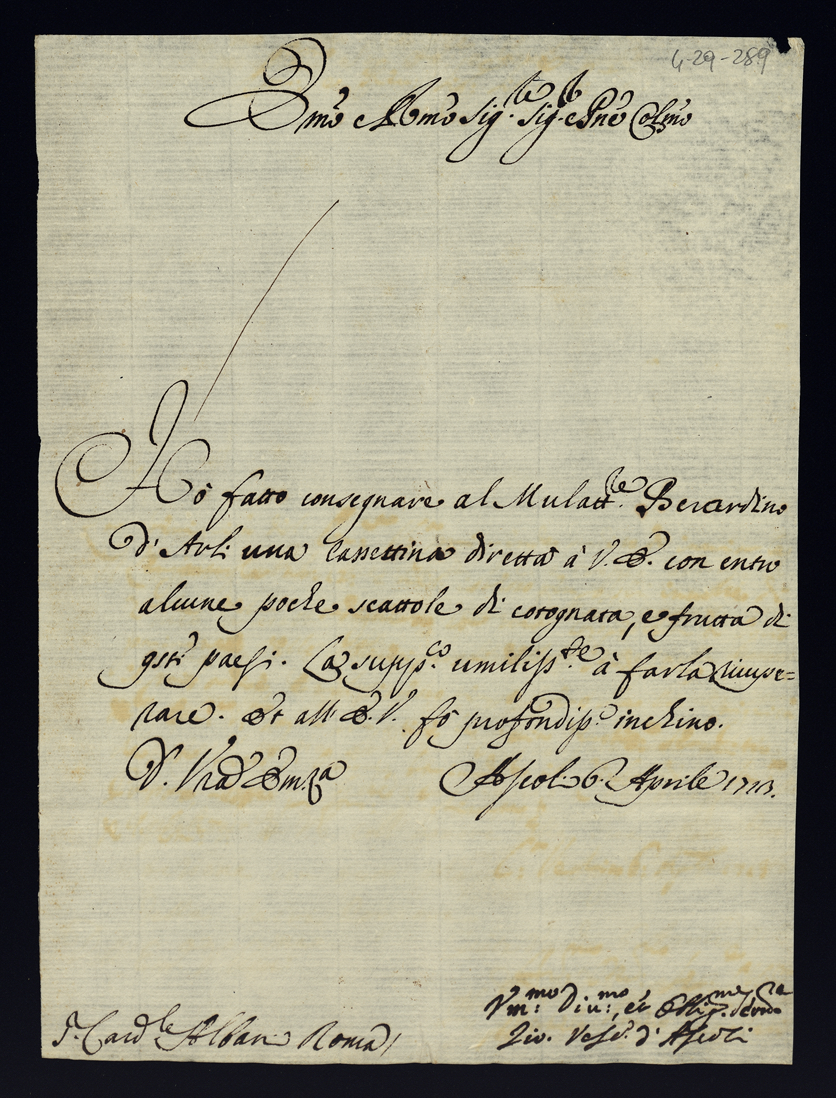 4-29-289
Emo e Rmo Sig.re Sig.r e Pne Colmo
Hò fatto consegnare al Mulatt.re Berardino
d'Arli una Cassettina diretta à V. E. con entro
alcune poche scattole di cotognata, e frutta di
qsti paesi. La supp.co umiliss.te à farla ricupe=
rare. Et all' E. V. fò profondiss.o inchino.
D. Vra Emza Ascoli 6. Aprile 1713.
Vm:mo Diu:mo, et Obblig.mo
Gio. Vesc.o d'Ascoli
S.r Card.le Albani Roma